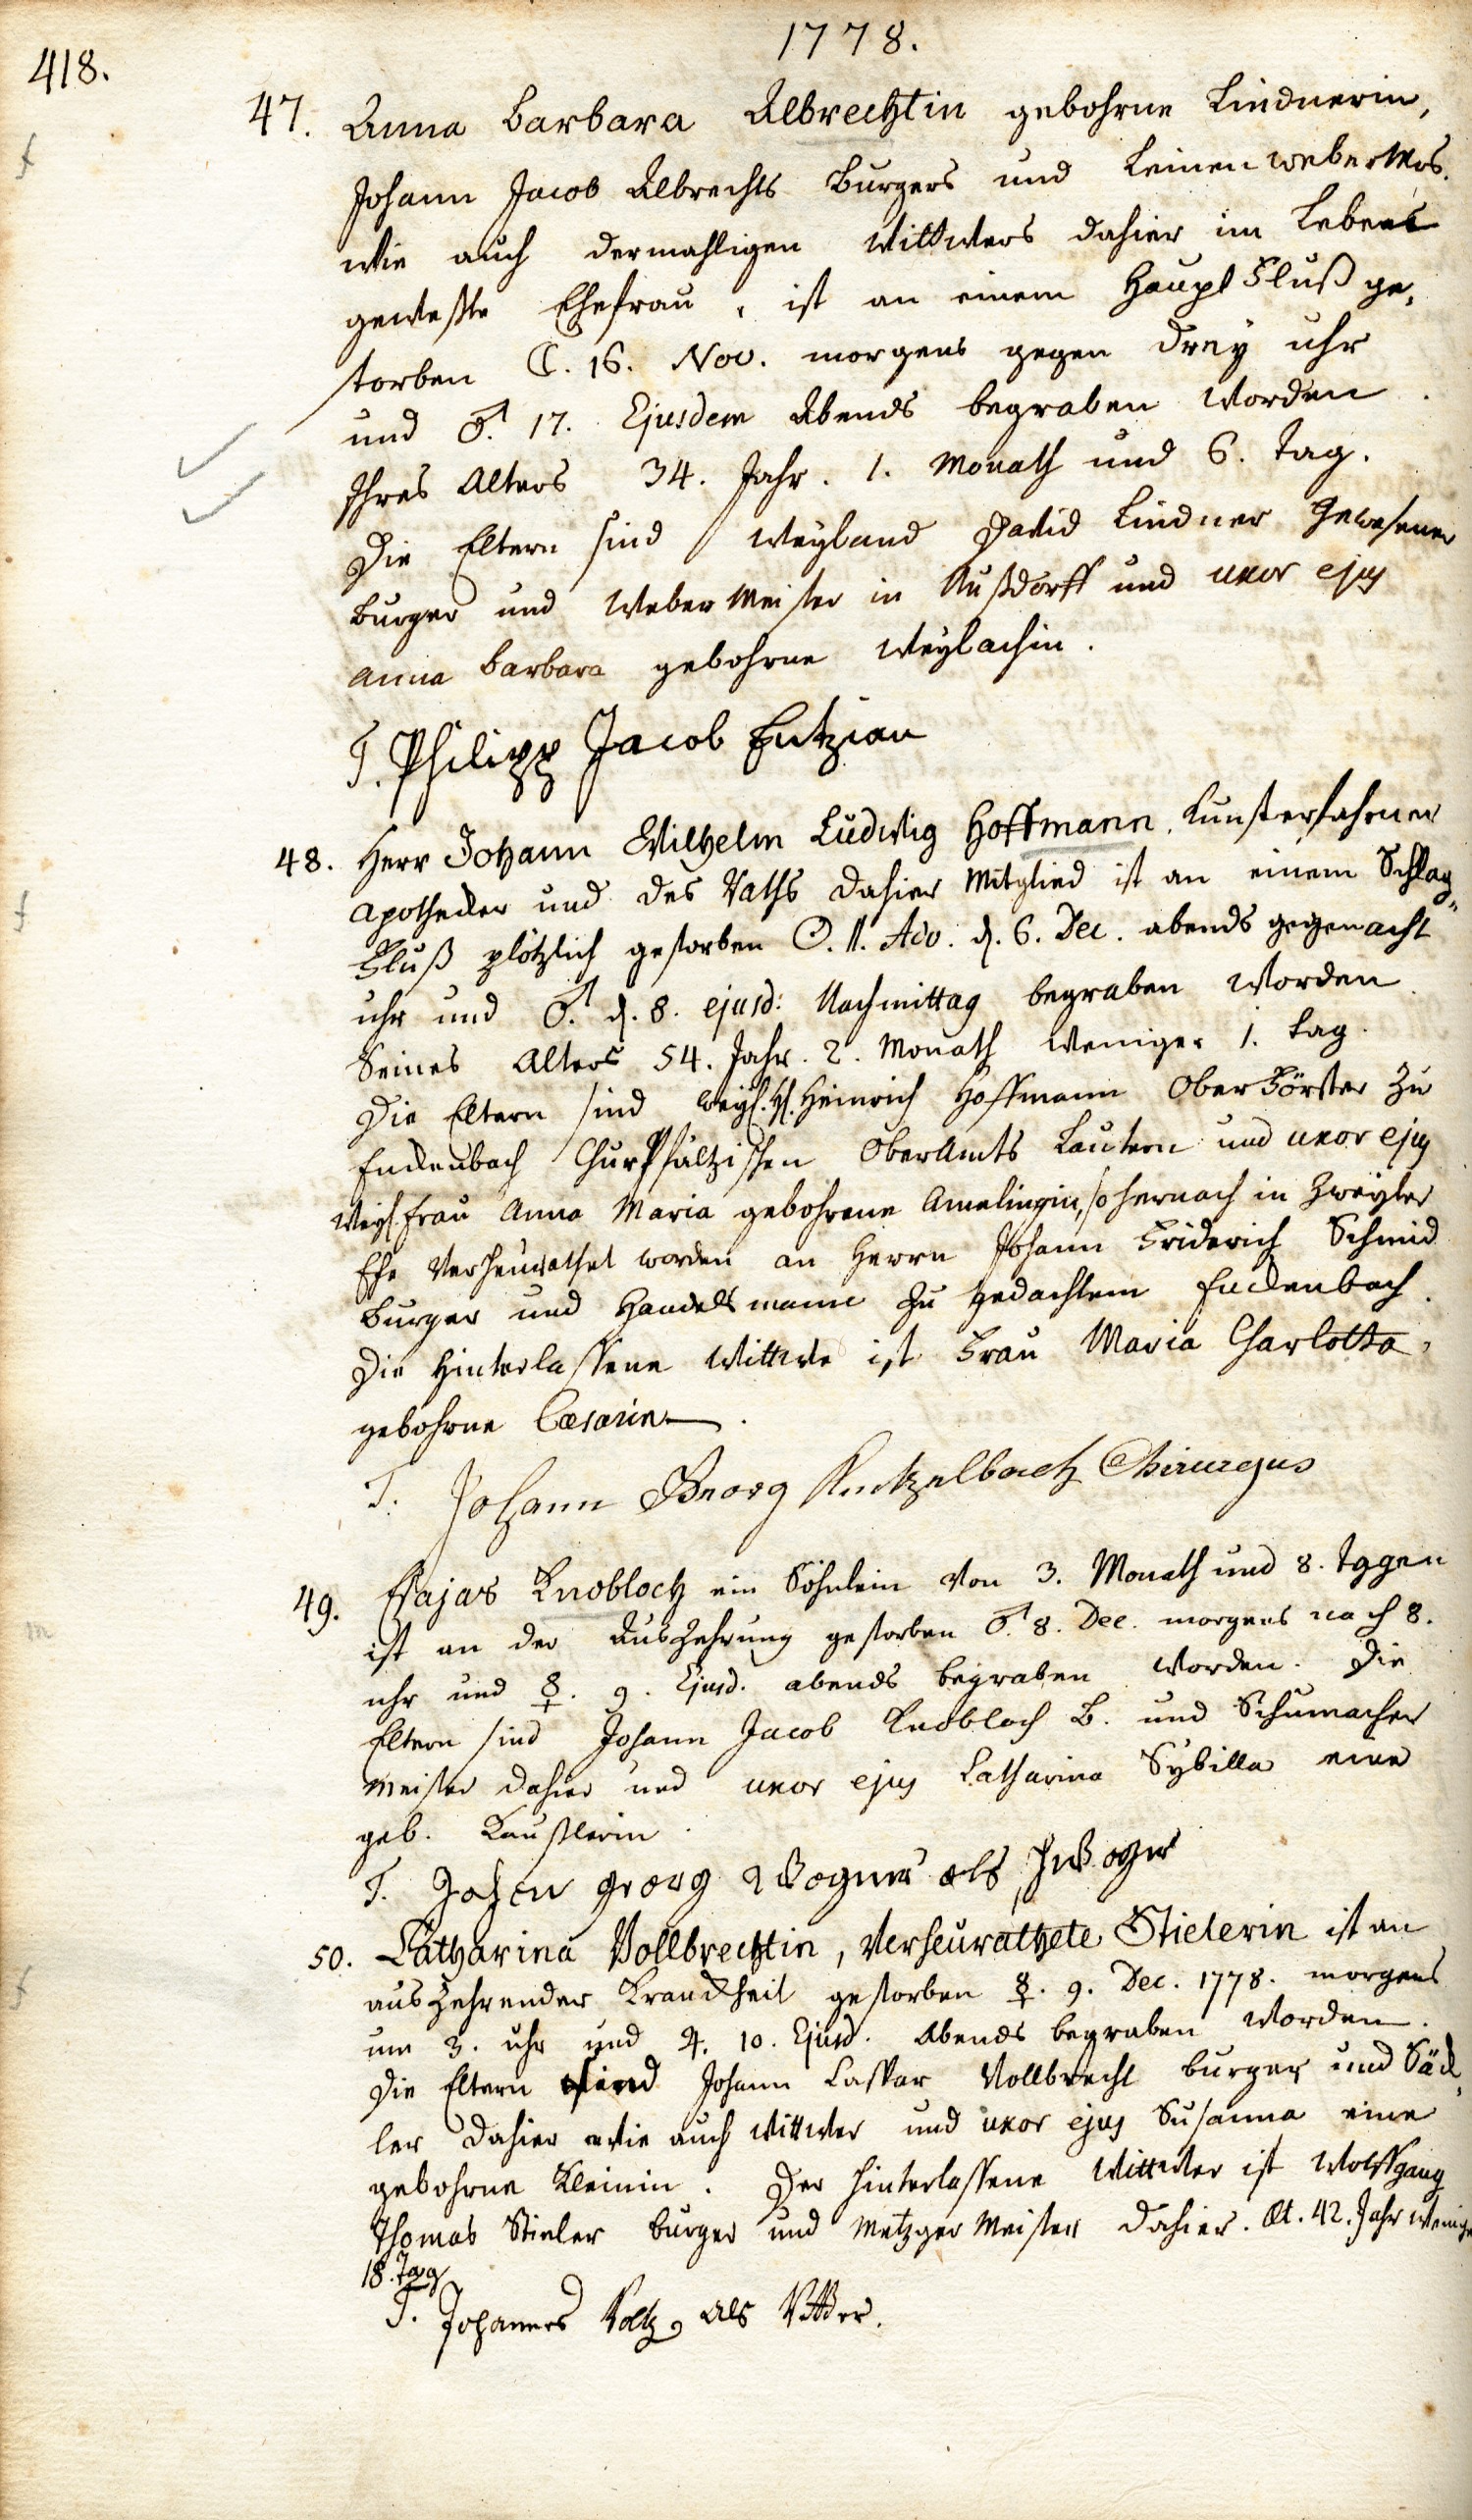 1778.
418.
47. Anna Barbara Albrechtin gebohrne Lindnerin,
Johann Jacob Albrechts Burgers und Leinenweber Mrs.
wie auch dermahligen Wittwers dahier im Leben
geweßte Ehefrau, ist an einem Haupt Fluß ge„
storben ☾. 16. Nov. morgens gegen drey uhr
und ♂. 17. Ejusdem Abends begraben worden.
Ihres Alters 34. Jahr. 1. Monath und 6. Tag.
Die Eltern sind weyland David Lindner Gewesener
Burger und Weber Meister in Nußdorff und uxor ejus
Anna Barbara gebohrne Weylachin.
T. Philipp Jacob Entzian
48. Herr Johann Wilhelm Ludwig Hoffmann, Kunsterfahrner
Apothecker und des Raths dahier Mitglied ist an einem Schlag„
Fluß plötzlich gestorben ☉. II. Adv. d. 6. Dec. abends gegen acht
uhr und ♂. d. 8. ejusd: Nachmittag begraben worden.
Seines Alters 54. Jahr. 2. Monath weniger 1. tag.
Die Eltern sind weyl. H. Heinrich Hoffmann Ober Förster zu
Enckenbach ChurPfältzischen OberAmts Lautern und uxor ejus
Weyl. Frau Anna Maria gebohrne so hernach in Zweyter
Ehe Verheurathet worden an Herrn Johann Friderich Schmid
Burger und Handelsmann zu gedachtem Enckenbach.
Die Hinterlassene Wittwe ist Frau Maria Charlotta,
gebohrne Cæsarin.
T. Johann Georg Chirurgus
49. Esajas Knobloch ein Söhnlein von 3. Monath und 8. Tagen
ist an der Auszehrung gestorben ♂. 8. Dec. morgens nach 8.
uhr und ☿. 9. Ejusd. abends begraben worden. Die
Eltern sind Johann Jacob Knobloch B. und Schumacher
Meister dahier und uxor ejus Catharina Sybilla eine
geb. Kaußlerin.
T. Johan Georg Wagner als
50. Catharina Vollbrechtin, Verheurathete Stielerin ist an
auszehrender Kranckheit gestorben ☿. 9. Dec. 1778. morgens
um 3. uhr und ♃. 10. Ejusd. Abends begraben worden.
Die Eltern sind Johann Caspar Vollbrecht burger und Säck„
ler dahier wie auch wittwer und uxor ejus Susanna eine
gebohrne Kleinin. Der hinterlassene Wittwer ist Wolffgang
Thomas Stieler burger und Metzger Meister dahier. Æt. 42. Jahr weniger
18. Tag
T. Johannes Voltz, als Vetter.